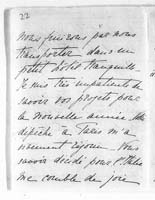 22
nous finirons par nous
transporter dans un
petit hôtel tranquille
Je suis très impatiente de
savoir vos projets pour
la nouvelle année. Une
dépêche à Paris m'a
vivement réjoui. Vous
savoir décidé pour l'Italie
me comble de joie